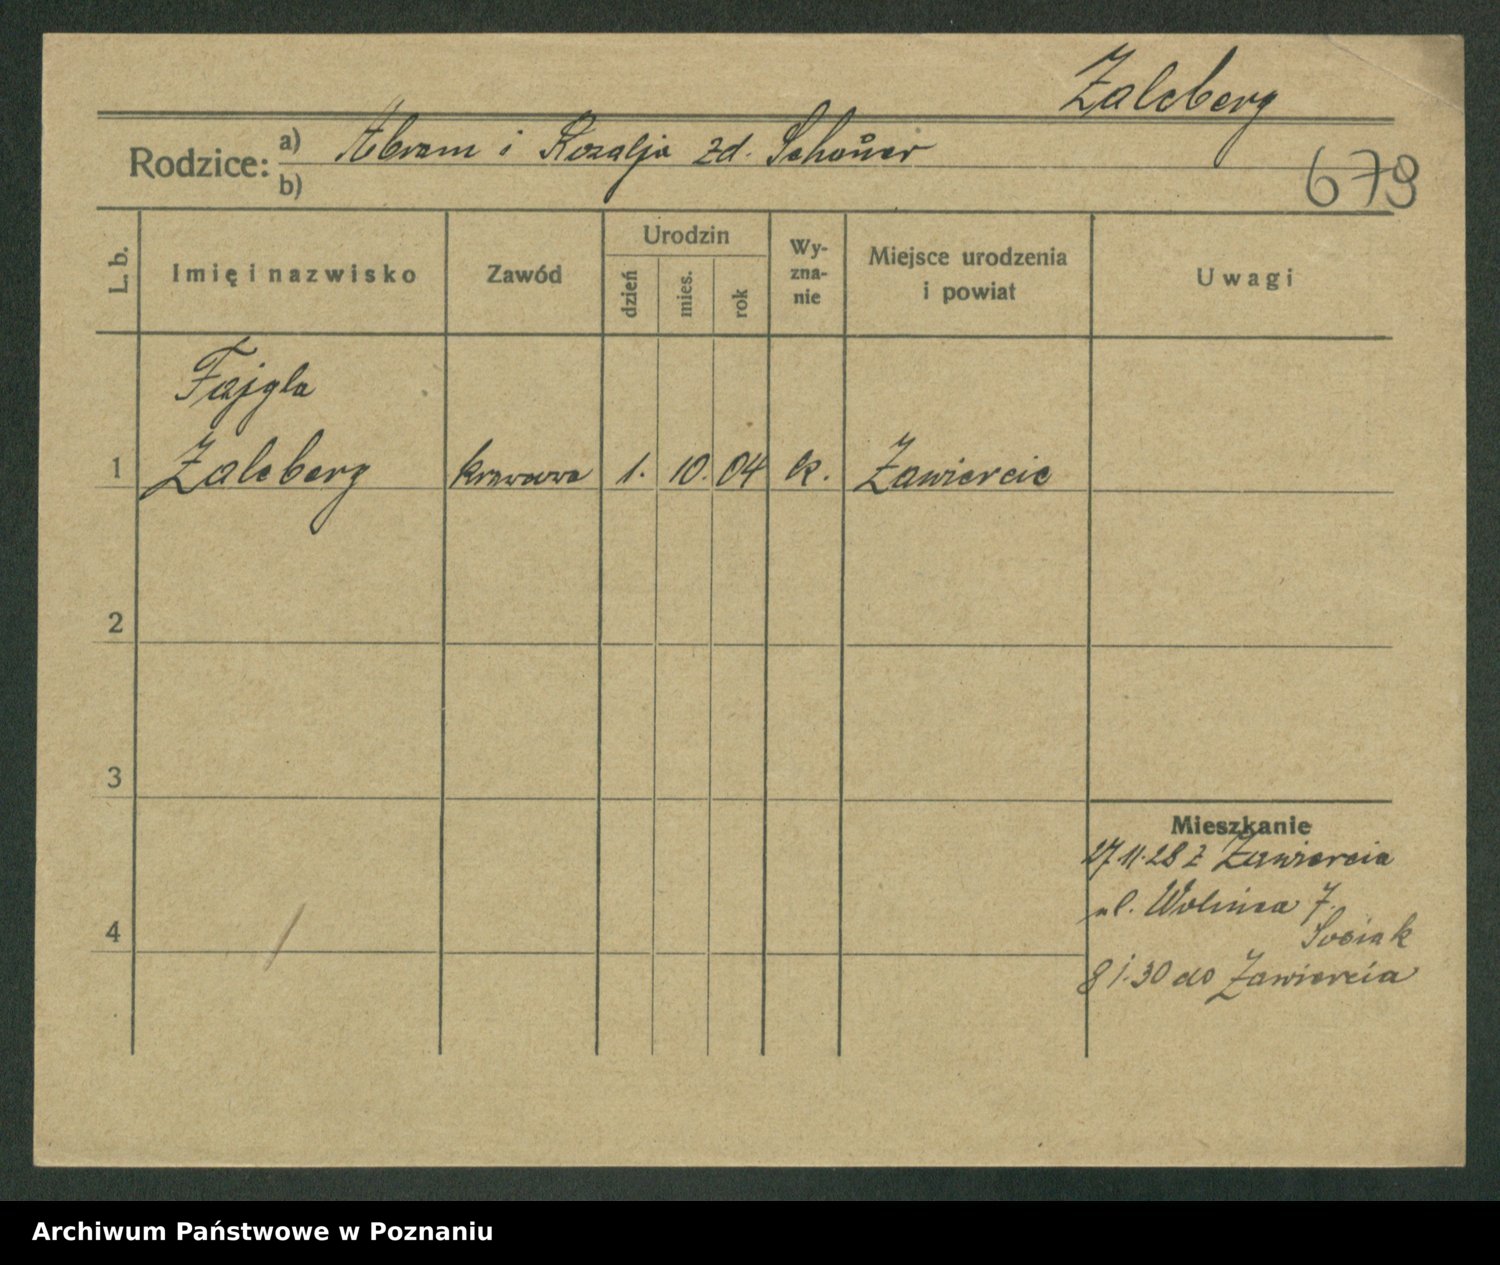 Zalcberg
Rodzice: a) Abram i Rozalja zd. Schöner
b)
679
L. b.
Imię i nazwisko
Zawód
Urodzin
dzień
mies.
rok
Wy-
zna-
nie
Miejsce urodzenia
i powiat
Uwagi
Fajgla
1 Zalcberg krawcowa 1. 10. 04 k. Zawiercie
2
3
4
Mieszkanie
27.11.28 z Zawiercia
ul. Wolnica 7.
8 1.30 do Zawiercia
Archiwum Państwowe w Poznaniu